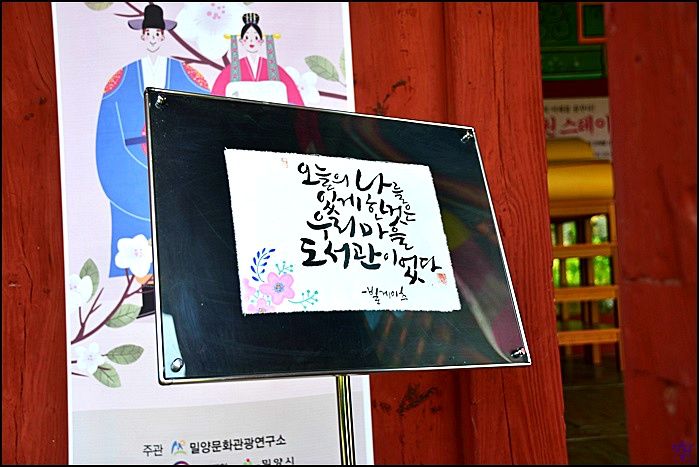 오늘의 나를
있게 한 것은
우리 마을
도서관이었다
-빌게이츠
주관 밀양문화관광연구소
밀양시
스테이